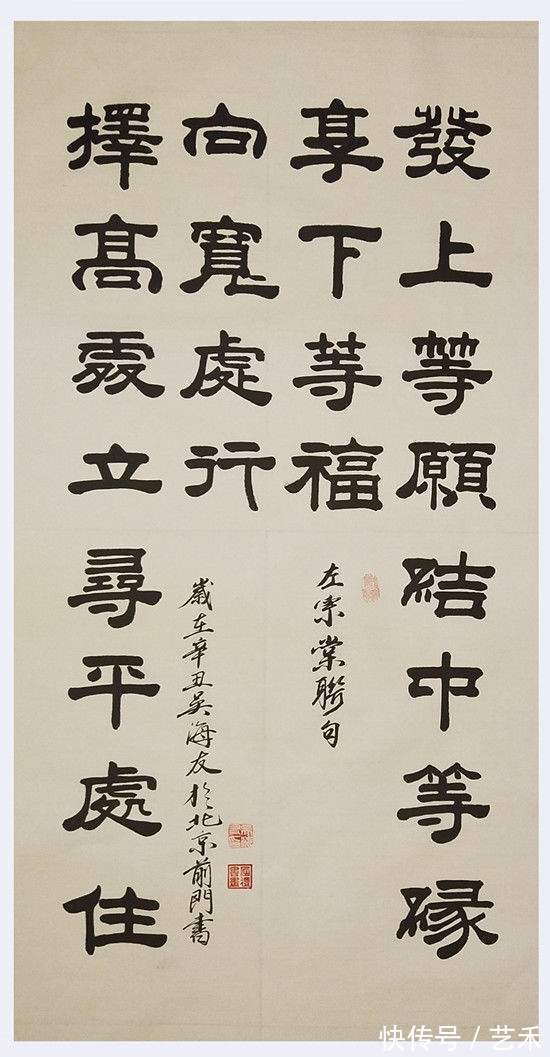 發上等願結中等緣
享下等福
左宗棠聯句
擇高處立尋平處住
向寬處行
歲在辛丑吳海友於北京前門書
快传号 / 艺禾